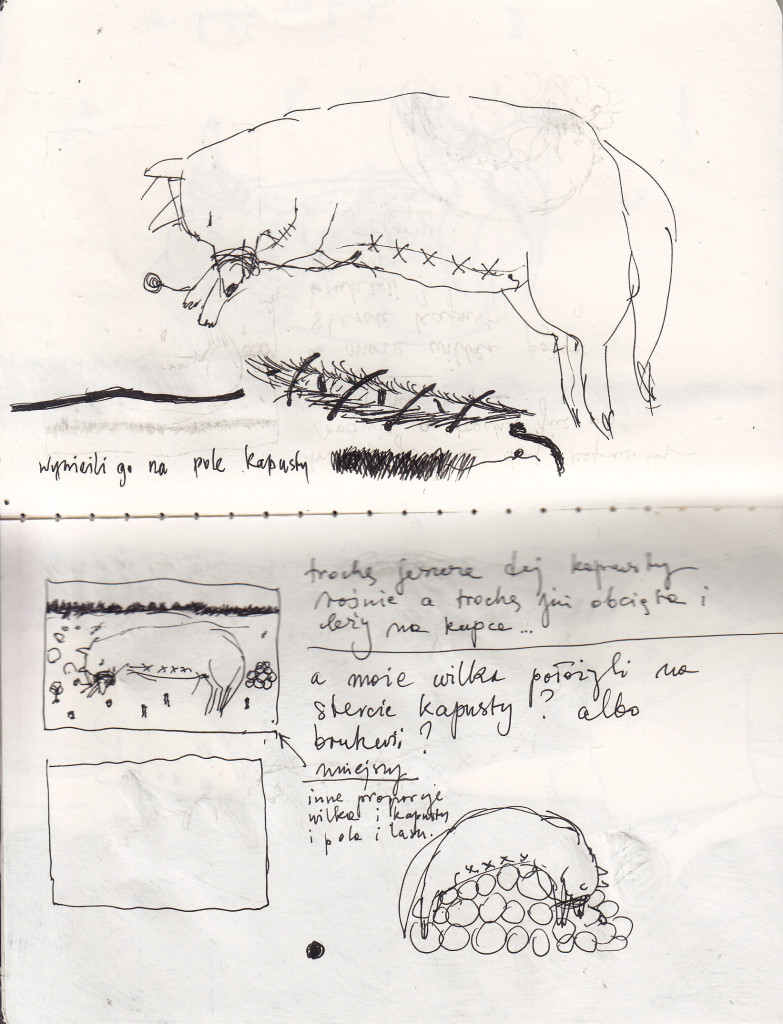 wynieśli go na pole kapusty
trochę jeszcze tej kapusty
rośnie a trochę już obcięta i
leży na kupce...
a może wilka położyli na
stercie kapusty? albo
brukwi?
mniejszy
inne proporcje
wilka i kapusty
i pola i lasu.